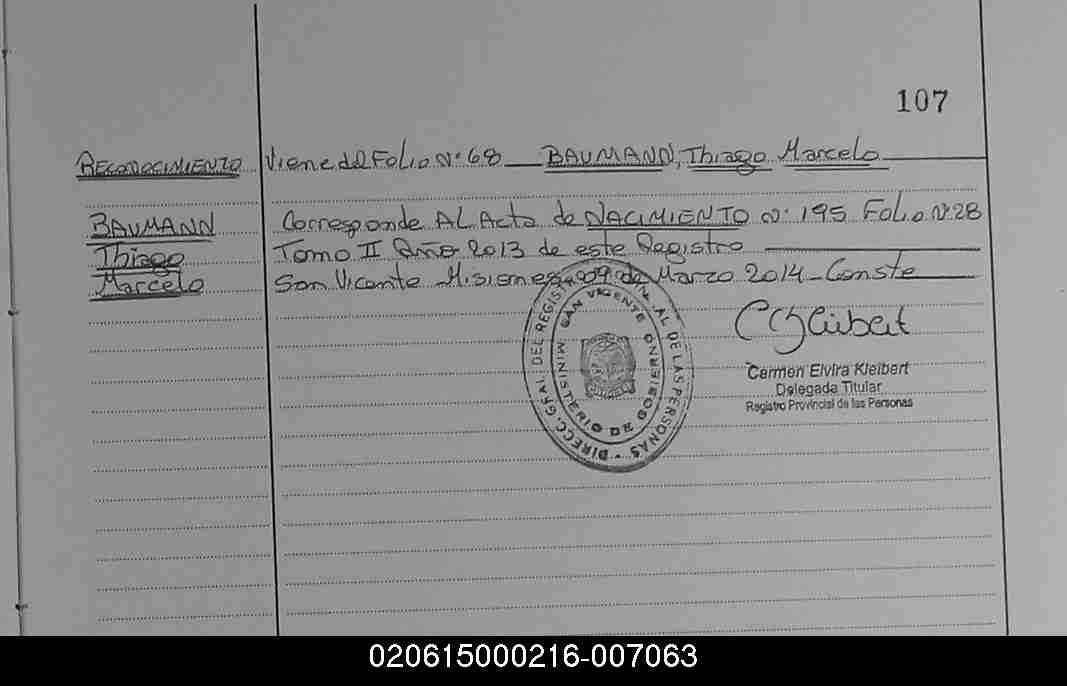 107
RECONOCIMIENTO Viene del Folio Nº 68 BAUMANN, Thiago Marcelo
BAUMANN Corresponde AL Acta de NACIMIENTO Nº 195 Folio Nº 28
Thiago Tomo II Año 2013 de este Registro
Marcelo San Vicente Misiones de Marzo 2014 - Conste
DIRECC. GRAL DEL REGIS AL DE LAS PERSONAS
MINISTERIO DE GOBIERNO
SAN VICENTE
Carmen Elvira Kleibert
Delegada Titular
Registro Provincial de las Personas
020615000216-007063